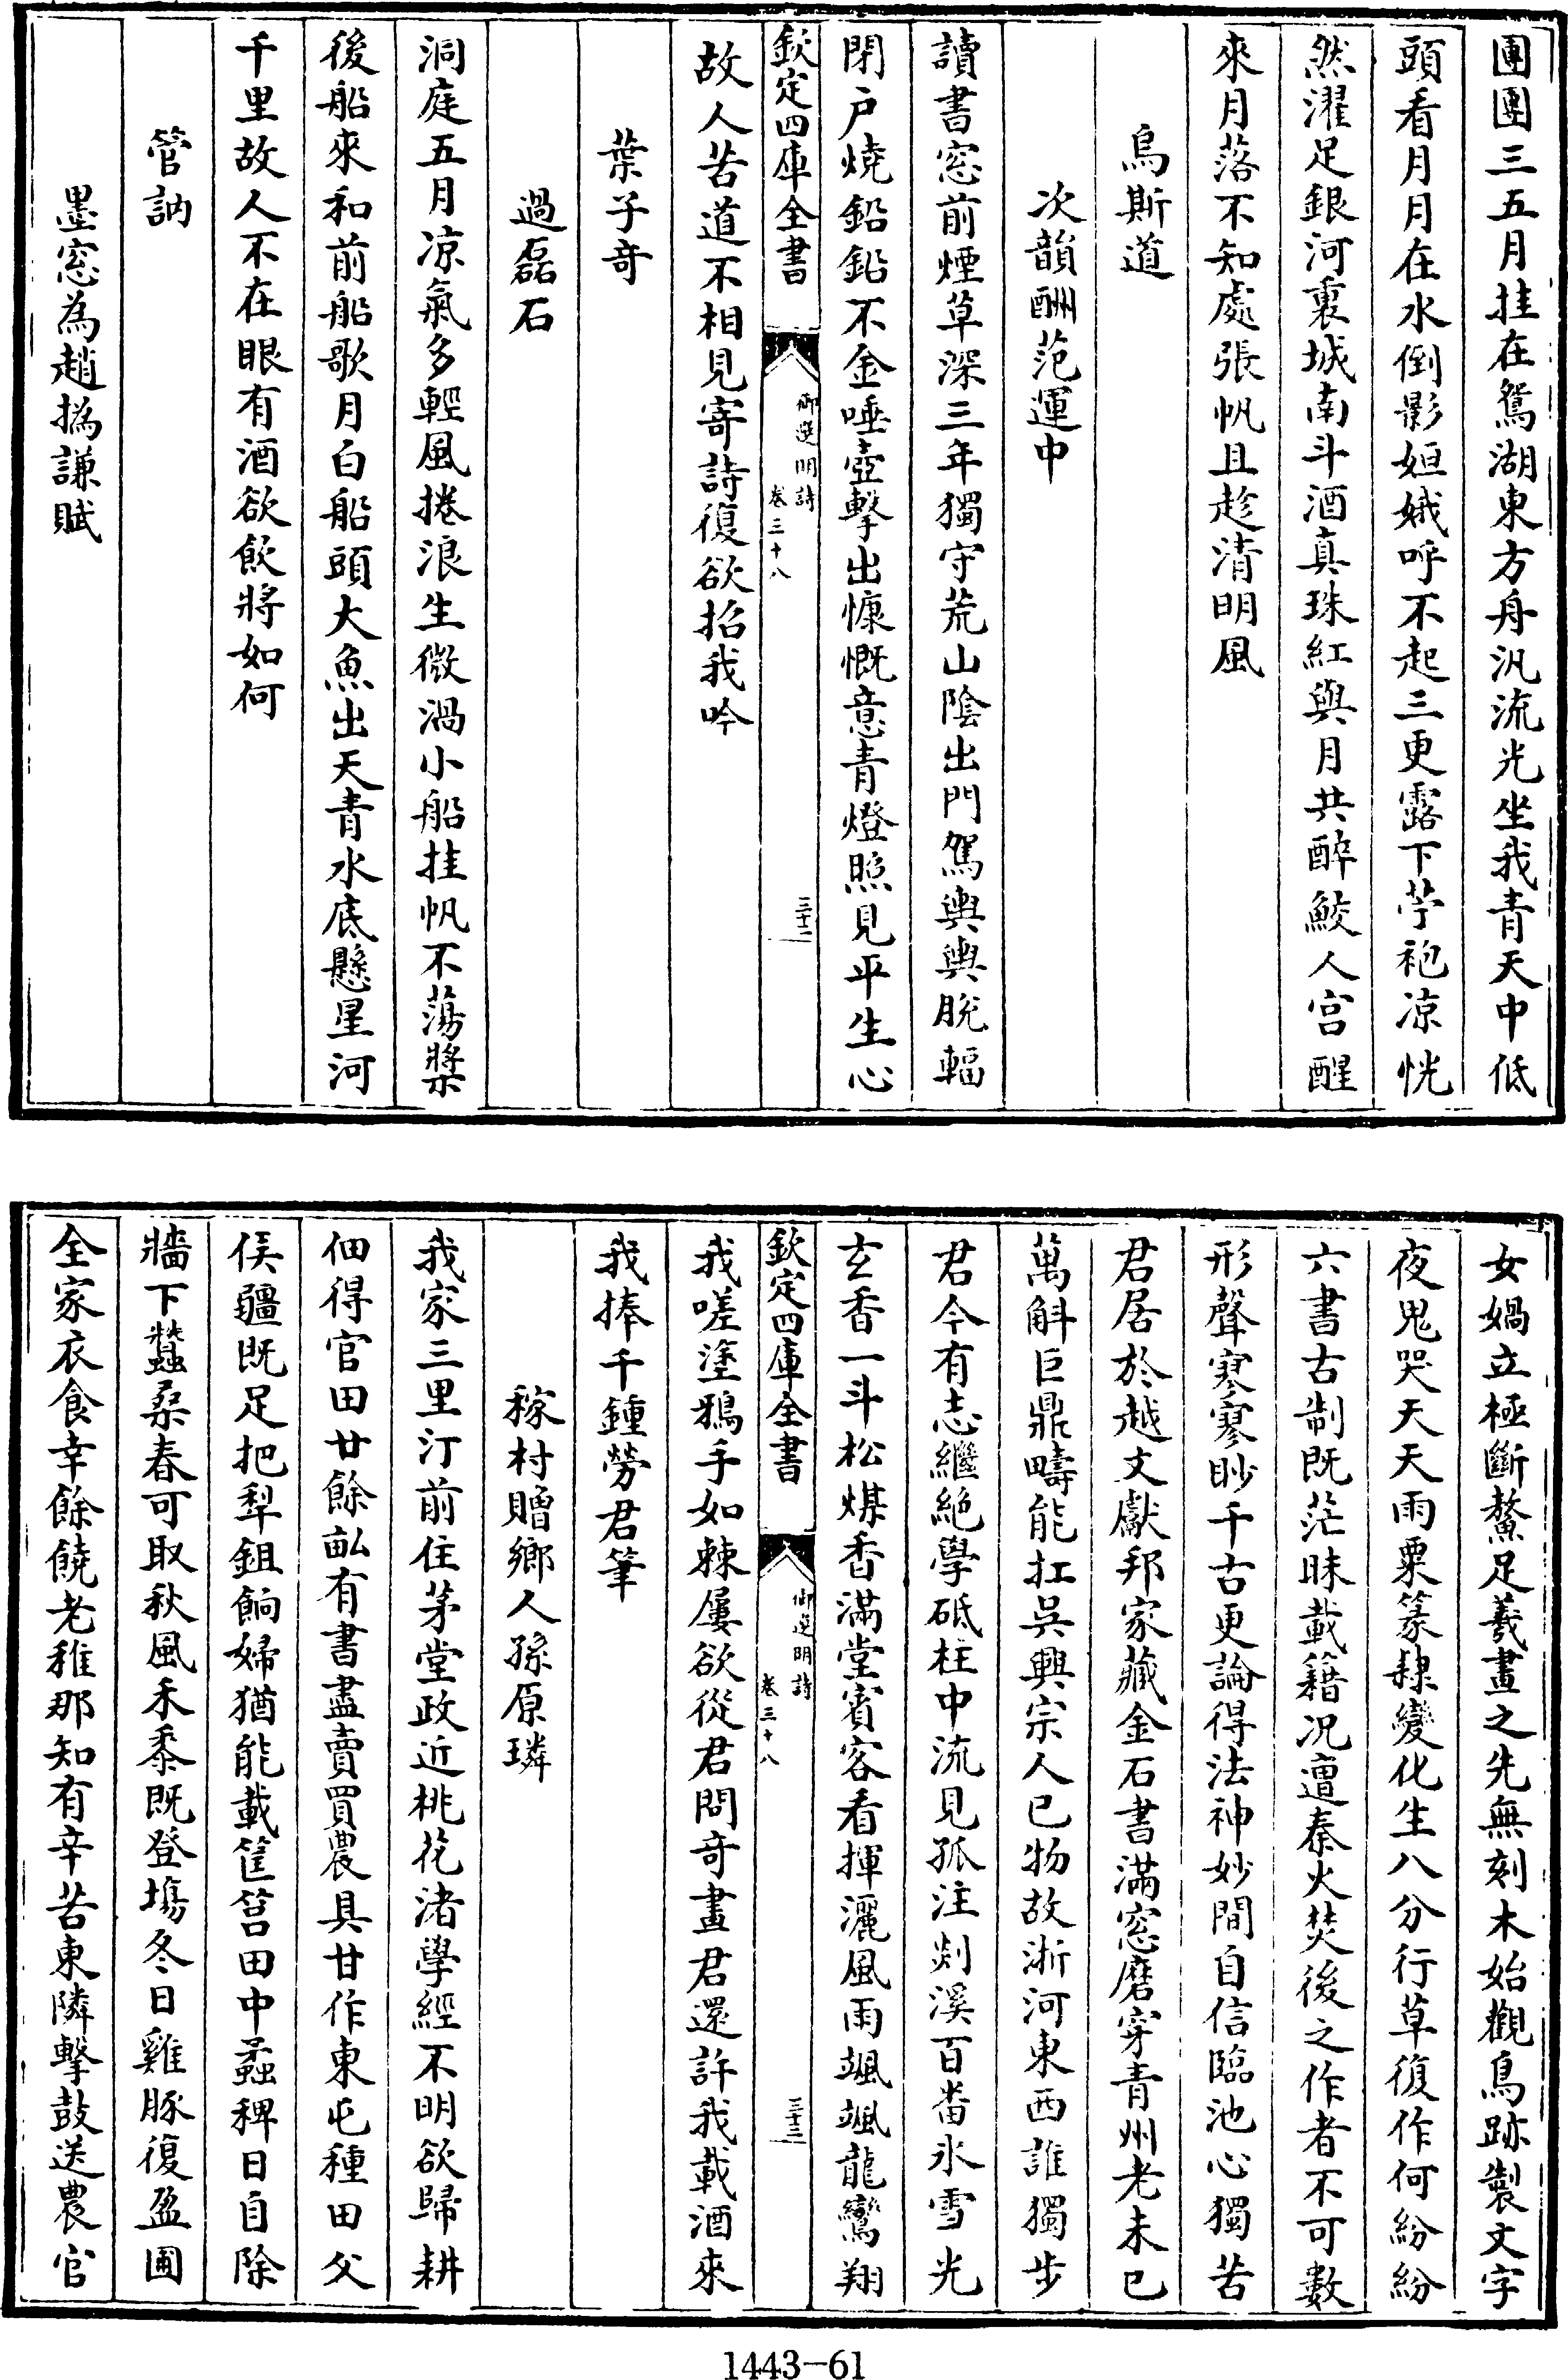 團團三五月挂在鴛湖東方舟汎流光坐我青天中低
頭看月月在水倒影姮娥呼不起三更露下苧袍凉恍
然濯足銀河裏城南斗酒真珠紅與月共醉鮫人宫醒
來月落不知處張帆且趁清明風
烏斯道
次韻酬范運中
讀書窓前煙草深三年獨守荒山陰出門駕輿輿脫輻
閉户燒鉛鉛不金唾壺擊出慷慨意青燈照見平生心
欽定四庫全書
御選明詩
卷三十八
三十二
故人苦道不相見寄詩復欲招我吟
葉子奇
過磊石
洞庭五月凉氣多輕風捲浪生微渦小船挂帆不蕩槳
後船來和前船歌月白船頭大魚出天青水底懸星河
千里故人不在眼有酒欲飲將如何
管訥
墨窓為趙撝謙賦
女媧立極斷鰲足羲畫之先無刻木始觀鳥跡製文字
夜鬼哭天天雨粟篆隸變化生八分行草復作何紛紛
六書古制既茫昧載籍况遭秦火焚後之作者不可數
形聲寥寥眇千古更論得法神妙間自信臨池心獨苦
君居於越文獻邦家藏金石書滿窓磨穿青州老未已
萬斛巨鼎疇能扛吳興宗人已物故浙河東西誰獨步
君今有志繼絶學砥柱中流見孤注剡溪百番氷雪光
玄香一斗松煤香滿堂賓客看揮灑風雨颯颯龍鸞翔
欽定四庫全書
御選明詩
卷三十八
三十三
我嗟塗鴉手如棘屢欲從君問奇畫君還許我載酒來
我捧千鍾勞君筆
稼村贈鄉人孫原璘
我家三里汀前住茅堂政近桃花渚學經不明欲歸耕
佃得官田廿餘畝有書盡賣買農具甘作東屯種田父
俟疆既足把犁鉏餉婦猶能載筐筥田中螽稗日自除
牆下蠶桑春可取秋風禾黍既登塲冬日雞豚復盈圃
全家衣食幸餘饒老稚那知有辛苦東隣擊鼓送農官
1443-61